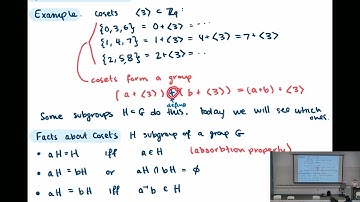 Example. cosets ⟨3⟩ ⊂ ℤ₉:
{0,3,6} = 0+⟨3⟩ = ...
{1,4,7} = 1+⟨3⟩ = 4+⟨3⟩ = 7+⟨3⟩
{2,5,8} = 2+⟨3⟩ = ...
cosets form a group
(a+⟨3⟩) + (b+⟨3⟩) = (a+b)+⟨3⟩
define
Some subgroups H<G do this. today we will see which ones.
Facts about Cosets H subgroup of a group G
• aH=H iff a∈H (absorbtion property)
• aH = bH or aH ∩ bH = ∅
• aH = bH iff a⁻¹b ∈ H